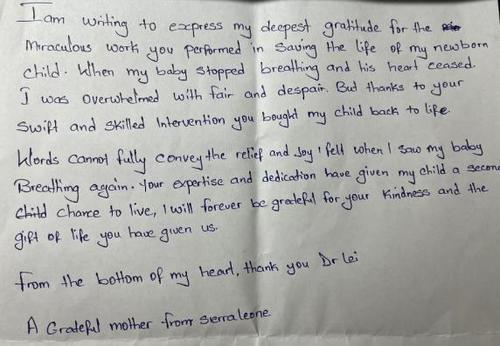 I am writing to express my deepest gratitude for the
Miraculous work you performed in saving the life of my newborn
child. When my baby stopped breathing and his heart ceased.
I was overwhelmed with fair and despair. But thanks to your
Swift and skilled Intervention you bought my child back to life.
Words cannot fully convey the relief and Joy I felt when I saw my baby
Breathing again. Your expertise and dedication have given my child a second
child chance to live, I will forever be grateful for your Kindness and the
gift of life you have given us.
From the bottom of my heart, thank you Dr Lei
A Grateful mother from Sierraleone